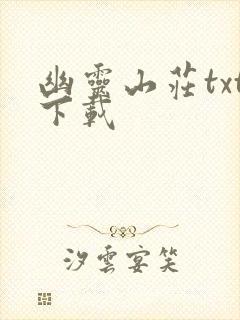 幽靈山莊txt
下載
汐雲宴笑